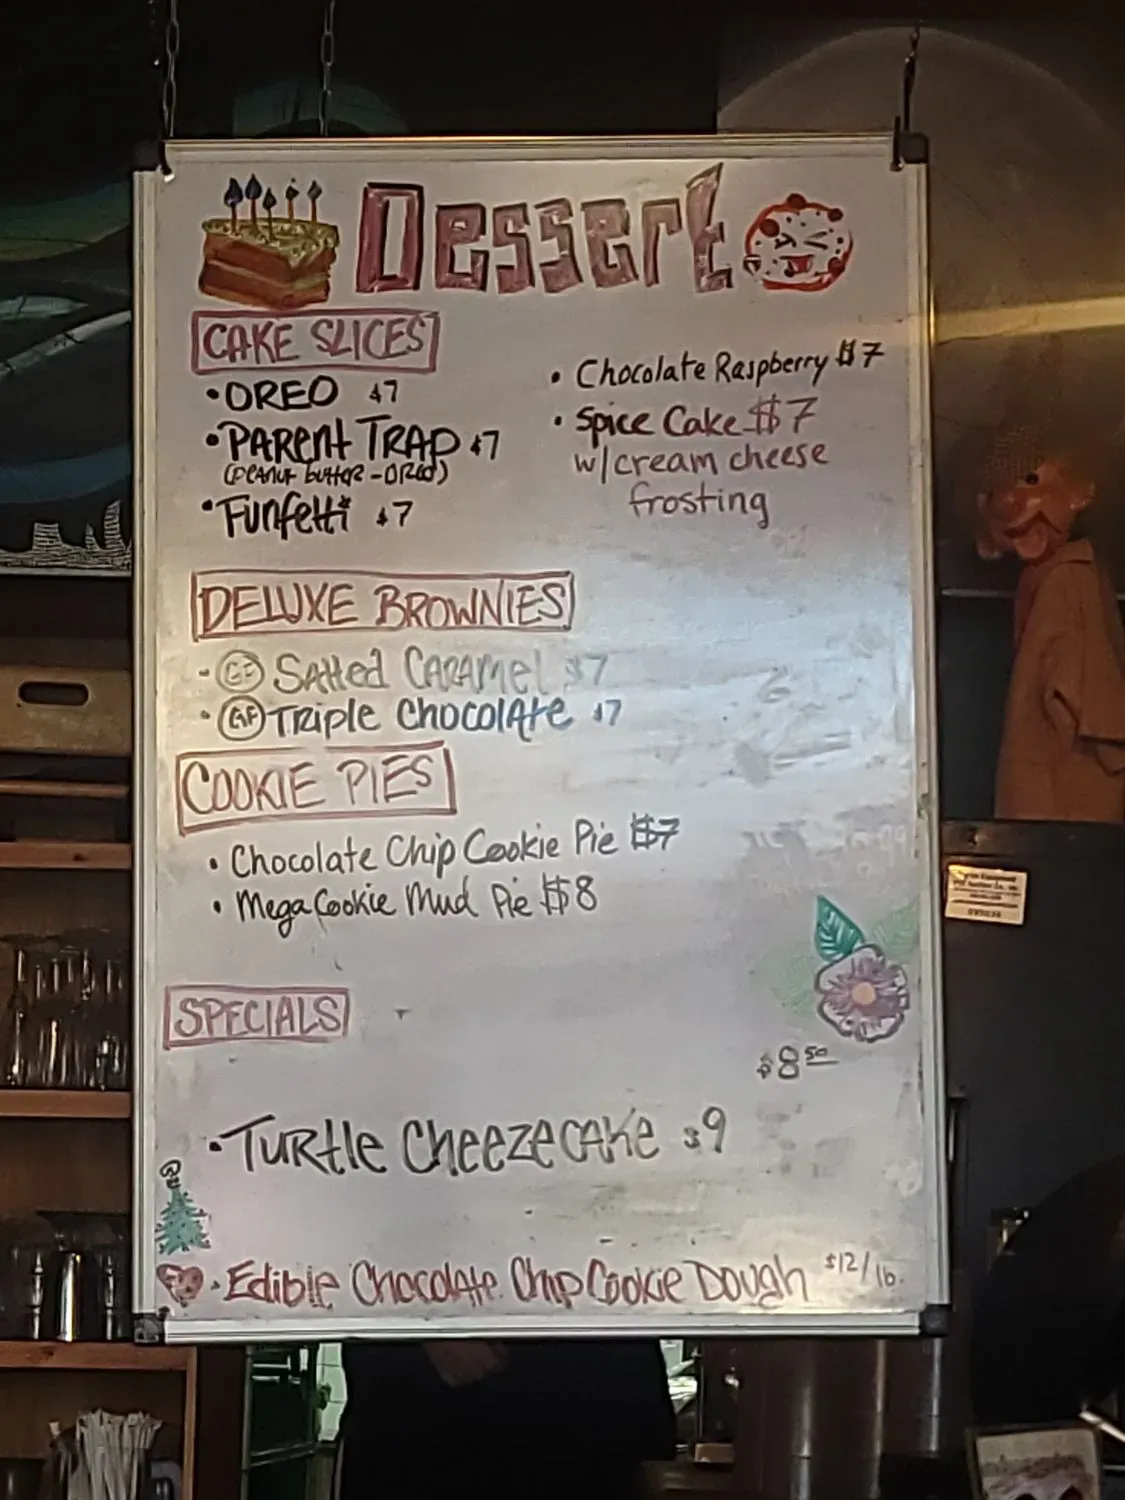 Dessert
CAKE SLICES
• OREO $7
• PARENT TRAP $7
(PEANUT BUTTER - OREO)
• Funfetti $7
• Chocolate Raspberry $7
• Spice Cake $7
w/cream cheese
frosting
DELUXE BROWNIES
- GF Salted Caramel $7
• GF Triple Chocolate $7
COOKIE PIES
• Chocolate Chip Cookie Pie $7
• Mega Cookie Mud Pie $8
SPECIALS
$8 50
• Turtle Cheezecake $9
• Edible Chocolate Chip Cookie Dough $12/lb.